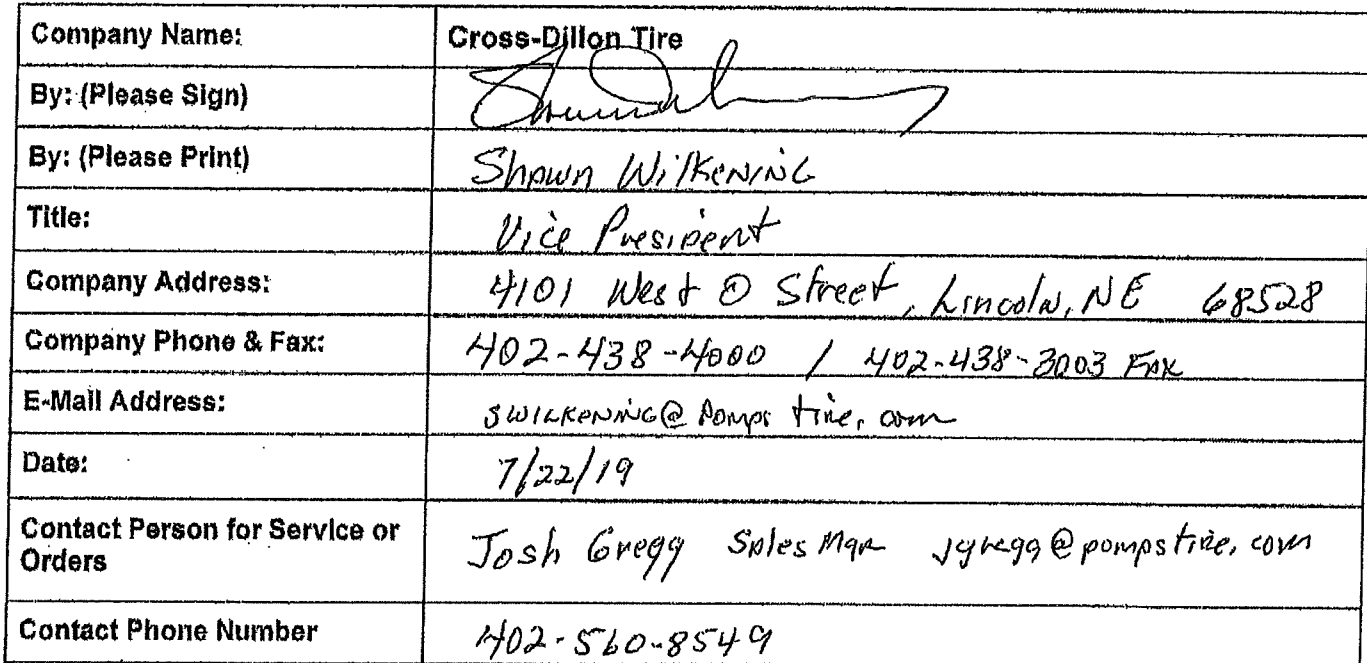 Company Name: Cross-Dillon Tire
By: (Please Sign)
By: (Please Print) Shawn Wilkening
Title: Vice President
Company Address: 4101 West O Street, Lincoln, NE 68528
Company Phone & Fax: 402-438-4000 / 402-438-3003 Fax
E-Mail Address: swilkening@pompstire.com
Date: 7/22/19
Contact Person for Service or
Orders Josh Gregg Sales Mgr jgregg@pompstire.com
Contact Phone Number 402-560-8549